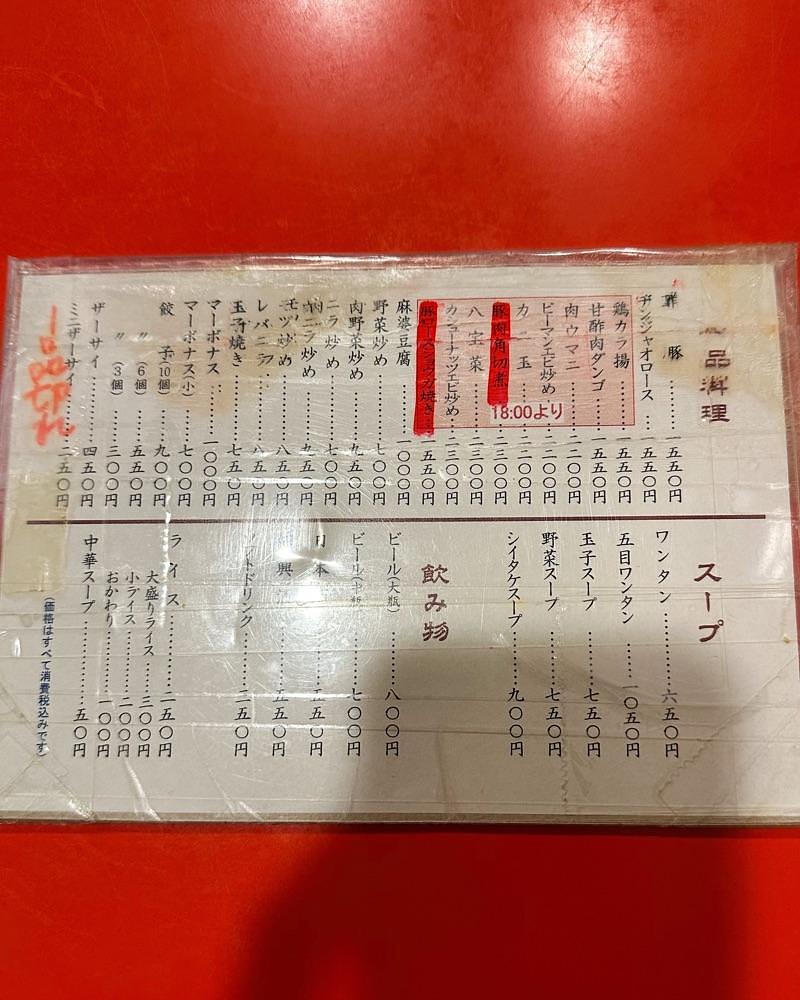 品料理
酢豚………一五五〇円
チンジャオロース…一五五〇円
鶏カラ揚………一五五〇円
甘酢肉ダンゴ………一五五〇円
肉ウマニ………二二〇〇円
ピーマンエビ炒め………二二〇〇円
カニ玉………二二〇〇円
豚肉角切煮………二三〇〇円
八宝菜………二三〇〇円
カシューナッツエビ炒め…二三〇〇円
豚ロースショウガ焼き…一五五〇円
18:00より
麻婆豆腐………一〇〇〇円
野菜炒め………七〇〇円
肉野菜炒め………九五〇円
ニラ炒め………七〇〇円
肉ニラ炒め………九五〇円
モツ炒め………八五〇円
レバニラ………八五〇円
玉子焼き………七五〇円
マーボナス………一〇〇〇円
マーボナス(小)………七〇〇円
餃子(10個)………九〇〇円
〃(6個)………五五〇円
〃(3個)………三〇〇円
ザーサイ………四五〇円
ミニザーサイ………二五〇円
スープ
ワンタン………六五〇円
五目ワンタン………一〇五〇円
玉子スープ………七五〇円
野菜スープ………七五〇円
シイタケスープ………九〇〇円
飲み物
ビール(大瓶)………八〇〇円
ビール………七〇〇円
日本………五五〇円
興………五五〇円
ソフトドリンク………二五〇円
ライス………二五〇円
大盛りライス………三〇〇円
小ライス………二〇〇円
おかわり………一〇〇円
中華スープ………五〇円
(価格はすべて消費税込みです)